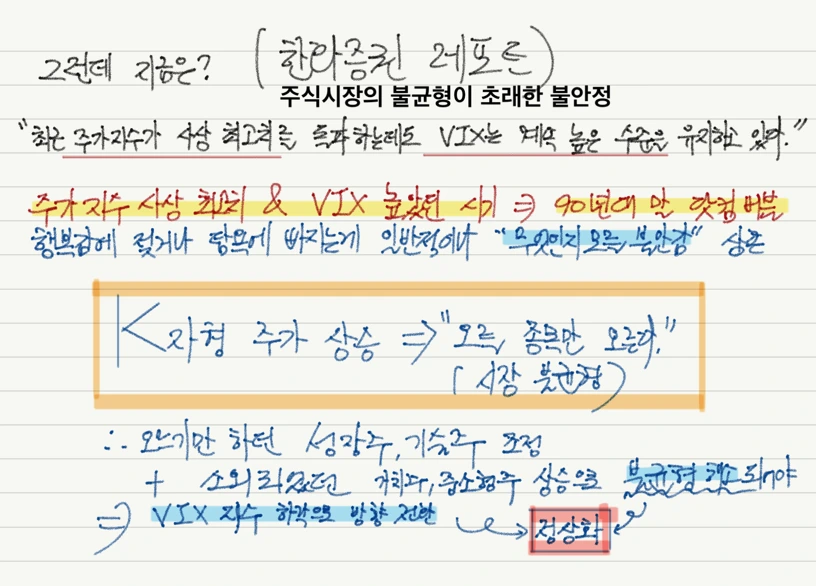 그런데 지금은? (한화증권 레포트)
주식시장의 불균형이 초래한 불안정
"최근 주가지수가 사상 최고치를 돌파하는데도 VIX는 계속 높은 수준을 유지하고 있다."
주가지수 사상 최고치 & VIX 높았던 시기 ⇒ 90년대 말 닷컴버블
행복감에 젖거나 탐욕에 빠지는게 일반적이나 "무엇인지 모를 불안감" 상존
K자형 주가 상승 ⇒ "오를 종목만 오른다."
(시장 불균형)
∴ 오르기만 하던 성장주, 기술주 조정
+ 소외되었던 가치주, 중소형주 상승으로 불균형 해소되어야
⇒ VIX 지수 하락으로 방향 전환 정상화